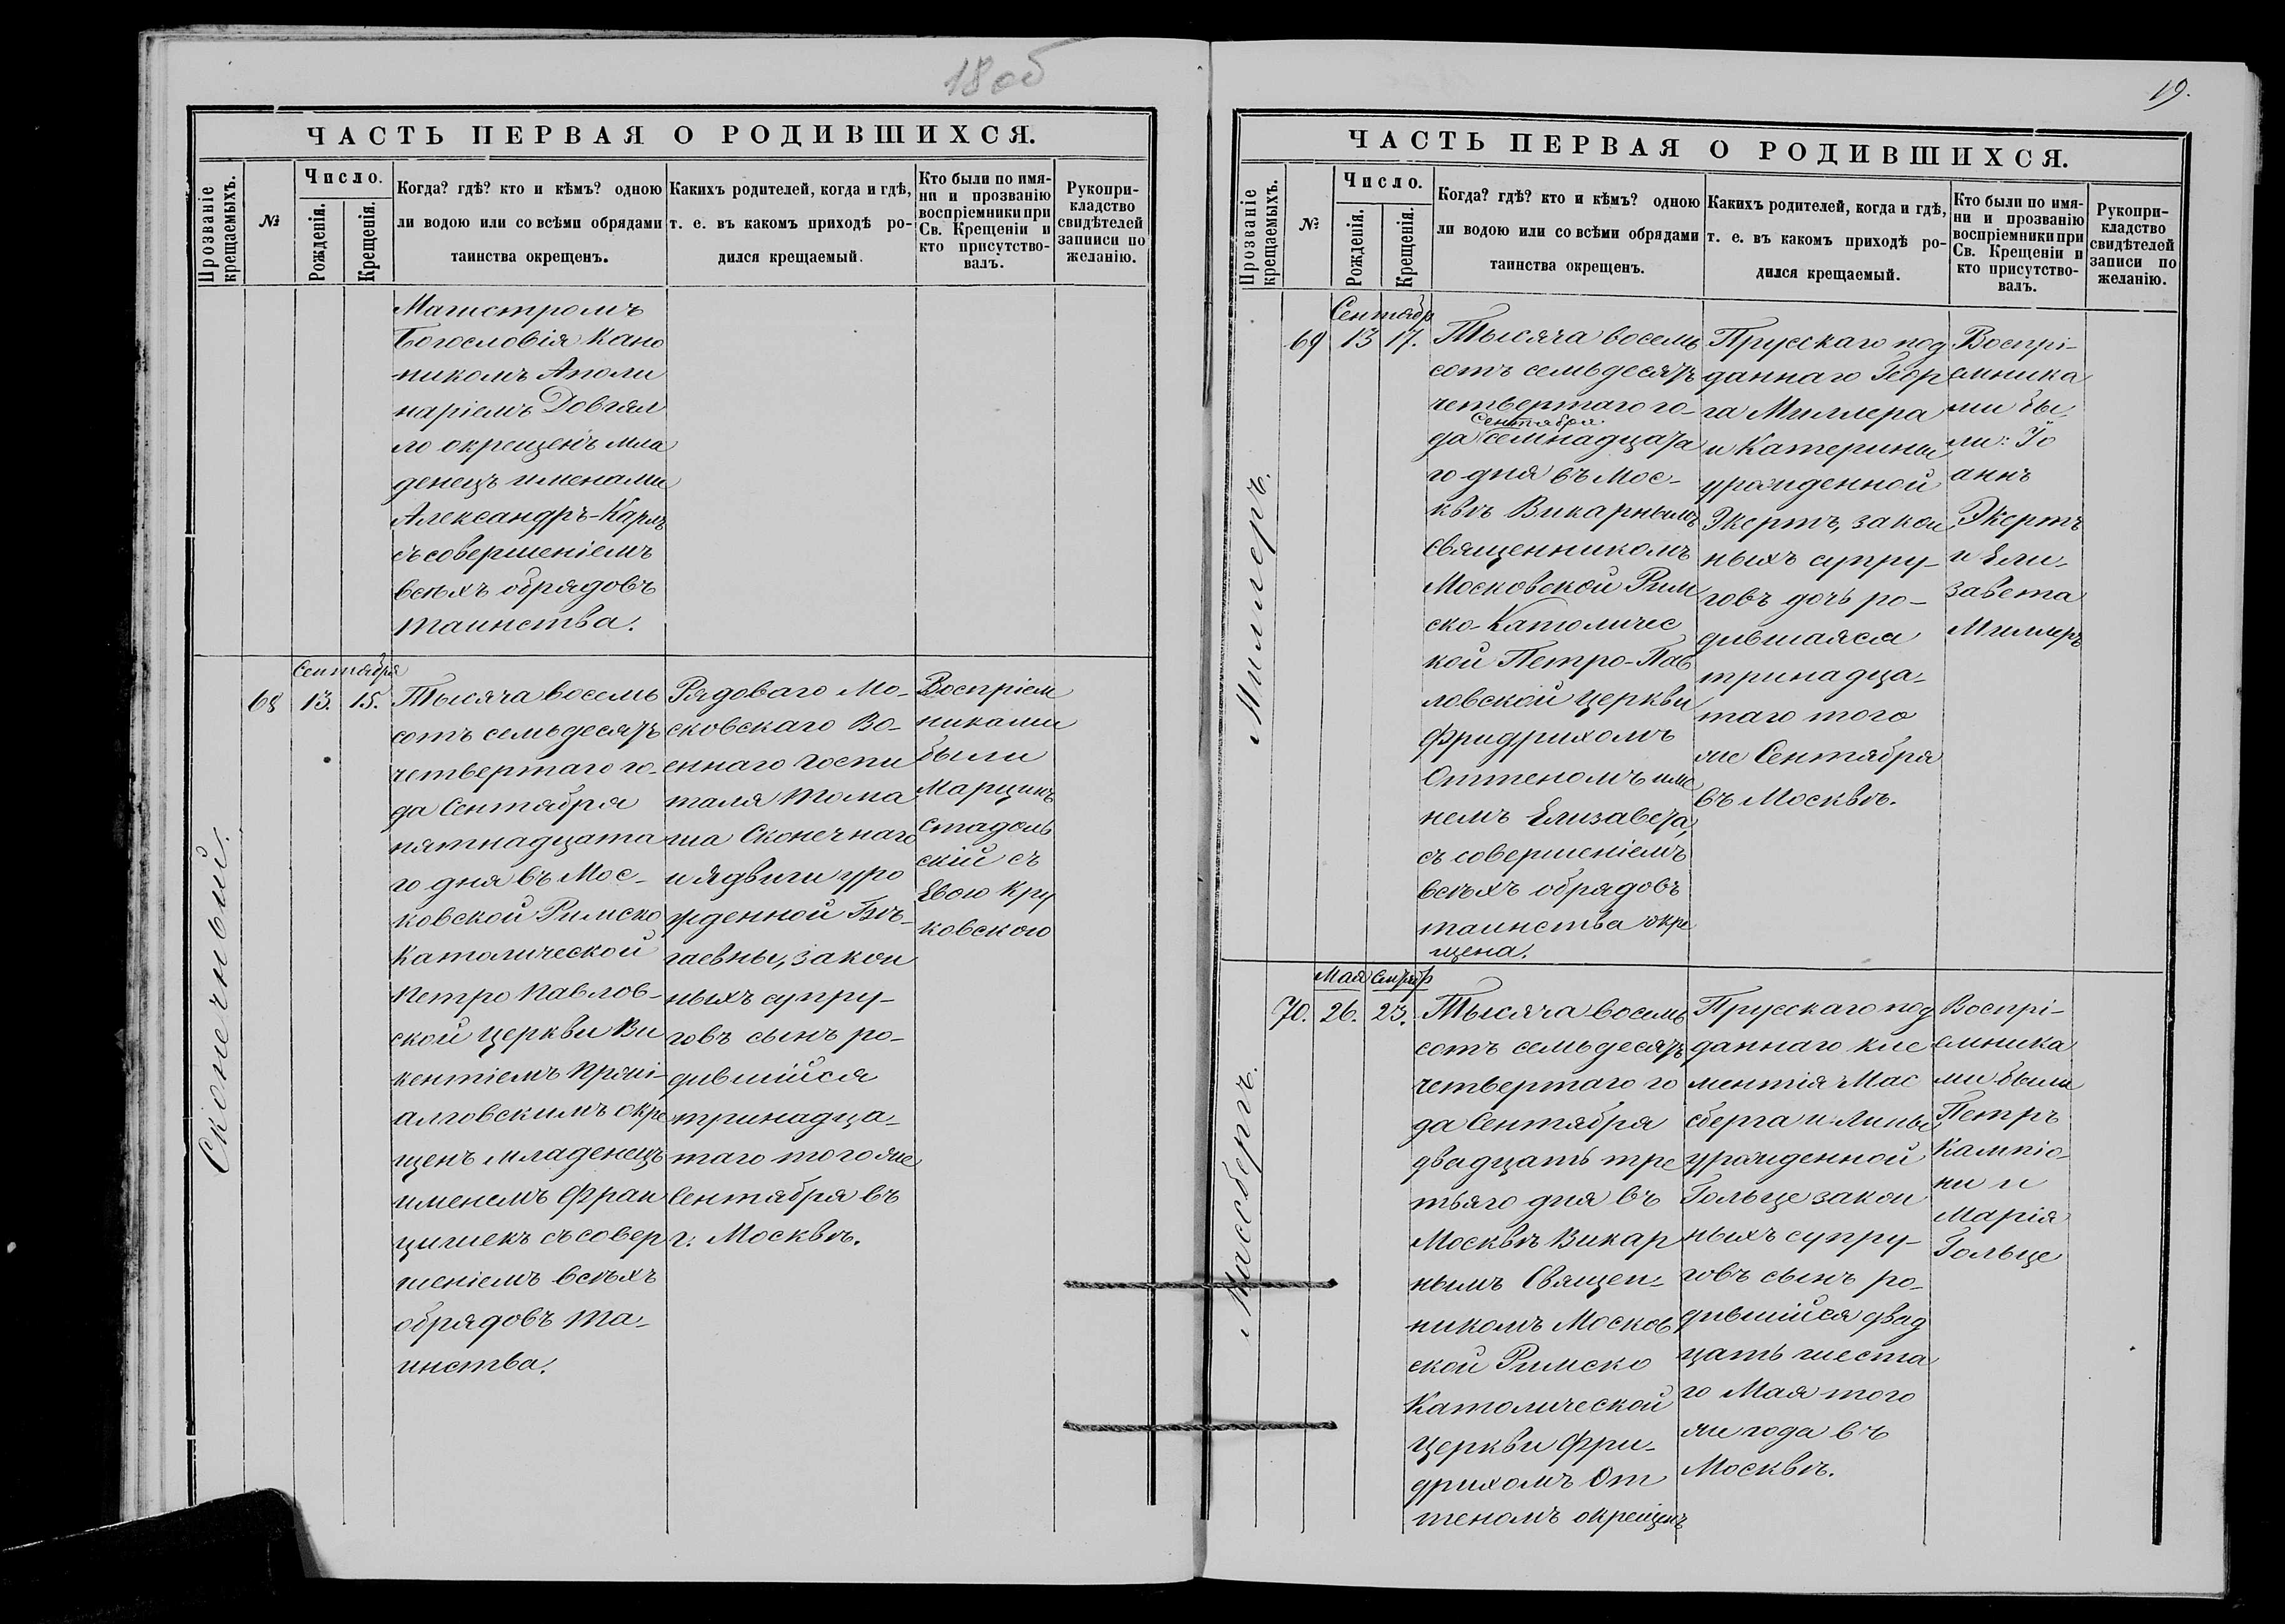 18 об
ЧАСТЬ ПЕРВАЯ О РОДИВШИХСЯ.
Прозваніе
крещаемыхъ.
№
Число.
Рожденія.
Крещенія.
Когда? гдѣ? кто и кѣмъ? одною
ли водою или со всѣми обрядами
таинства окрещенъ.
Какихъ родителей, когда и гдѣ,
т. е. въ какомъ приходѣ ро-
дился крещаемый.
Кто были по имя-
ни и прозванію
воспріемники при
Св. Крещеніи и
кто присутство-
валъ.
Рукопри-
кладство
свидѣтелей
записи по
желанію.
Магистромъ
Богословія Кано
никомъ Аполи
наріемъ Довгял
ло окрещенъ мла
денецъ именами
Александръ-Карлъ
съ совершеніемъ
всѣхъ обрядовъ
таинства.
Сконечный.
Сентября
68 13. 15.
Тысяча восемь
сотъ семьдесятъ
четвертаго го-
да Сентября
пятнадцата
го дня въ Мос-
ковской Римско
Католической
Петро Павлов-
ской церкви Ви
кентіемъ
алговскимъ окре
щенъ младенецъ
именемъ Фран
цишекъ съ совер
шеніемъ всѣхъ
обрядовъ та-
инства.
Рядоваго Мо-
сковскаго Во-
еннаго госпи
таля Тома
ша Сконечнаго
и Ядвиги уро
жденной Бѣ-
гаевны, закон
ныхъ супру-
говъ сынъ ро-
дившійся
тринадца-
таго того же
Сентября въ
г. Москвѣ.
Воспріем
никами
были
Марцинъ
Стадоль
скій съ
Евою Кру
ковскою
19.
ЧАСТЬ ПЕРВАЯ О РОДИВШИХСЯ.
Прозваніе
крещаемыхъ.
№
Число.
Рожденія.
Крещенія.
Когда? гдѣ? кто и кѣмъ? одною
ли водою или со всѣми обрядами
таинства окрещенъ.
Какихъ родителей, когда и гдѣ,
т. е. въ какомъ приходѣ ро-
дился крещаемый.
Кто были по имя-
ни и прозванію
воспріемники при
Св. Крещеніи и
кто присутство-
валъ.
Рукопри-
кладство
свидѣтелей
записи по
желанію.
Миллеръ.
Сентябр
69 13 17.
Тысяча восемь
сотъ семьдесятъ
четвертаго го-
Сентября
да семнадцата
го дня въ Мос-
квѣ Викарнымъ
Священникомъ
Московской Рим
ско-Католичес
кой Петро-Пав
ловской церкви
Фридрихомъ
Оттеномъ име
немъ Елизавета,
съ совершеніемъ
всѣхъ обрядовъ
таинства окре
щена.
Прусскаго под
даннаго Геор
га Миллера
и Катерины
урожденной
Экертъ, закон
ныхъ супру-
говъ дочь ро-
дившаяся
тринадца-
таго того
же Сентября
въ Москвѣ.
Воспрі-
емника
ми бы-
ли: Іо
аннъ
Экертъ
и Ели-
завета
Миллеръ
Массбергъ.
Мая Сентяр
70. 26. 23.
Тысяча восемь
сотъ семьдесятъ
четвертаго го
да Сентября
двадцать тре
тьяго дня въ
Москвѣ Викар
нымъ Священ-
никомъ Москов
ской Римско
Католической
Церкви Фри-
дрихомъ От
теномъ окрещенъ
Прусскаго под
даннаго Кле
ментія Мас
сберга и Лины
урожденной
Гольце закон
ныхъ супру-
говъ сынъ ро-
дившійся двад
цать шеста
го Мая того
же года въ
Москвѣ.
Воспрі-
емника
ми были
Петръ
Кампіо-
ни и
Марія
Гольце